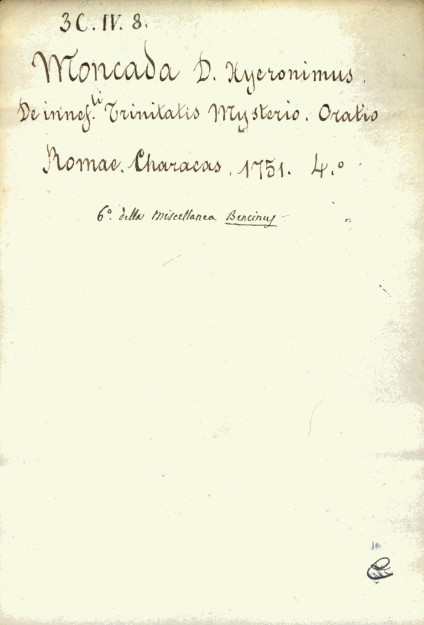 3 C. IV. 8.
Moncada D. Hyeronimus.
De ineff.li Trinitatis Mysterio. Oratio
Romae. Characas. 1751. 4.o
6o. della Miscellanea